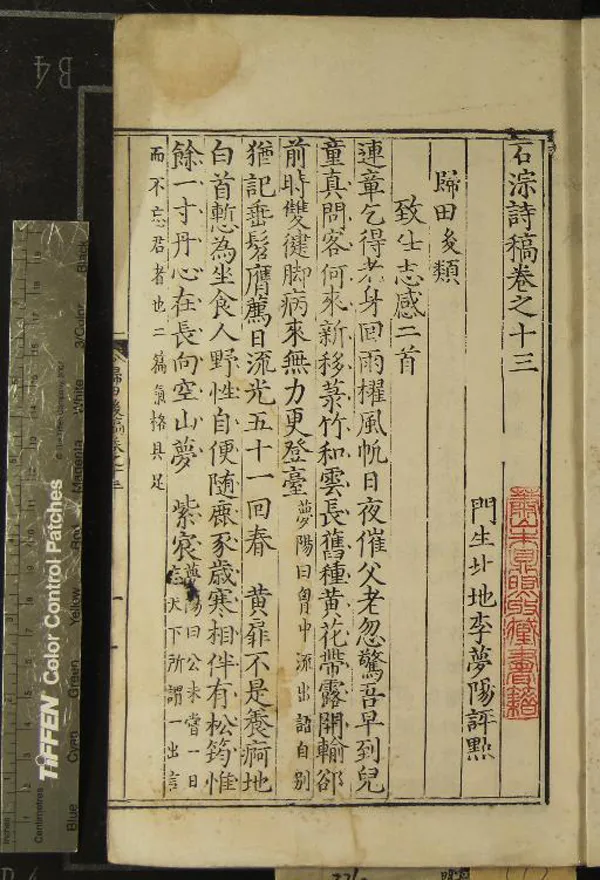 石淙詩稿卷之十三
門生北地李夢陽評點
歸田後類
致仕志感二首
連章乞得老身回雨櫂風帆日夜催父老忽驚吾早到兒
童真問客何來新移菉竹和雲長舊種黄花帶露開輸郤
前時雙健脚病來無力更登臺夢陽曰胷中流出語自别
猶記垂髫膺薦日流光五十一回春 黄扉不是養痾地
白首慙為坐食人野性自便随麋豕歳寒相伴有松筠惟
餘一寸丹心在長向空山夢 紫宸夢陽曰公未嘗一日
忘天下所謂一出言
而不忘君者也二篇氣格具足
歸田後稿卷之十三
一
B4
TIFFEN Color Control Patches
Blue Cyan Green Yellow Red Magenta White 3/Color Black
Inches
Centimetres